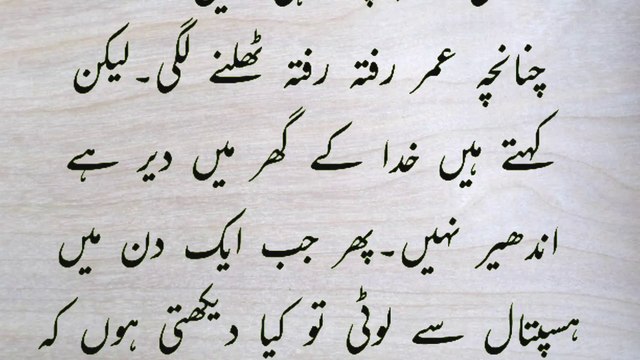 چنانچہ عمر رفتہ رفتہ ٹھلنے لگی۔ لیکن
کہتے ہیں خدا کے گھر میں دیر ہے
اندھیر نہیں۔ پھر جب ایک دن میں
ہسپتال سے لوٹی تو کیا دیکھتی ہوں کہ